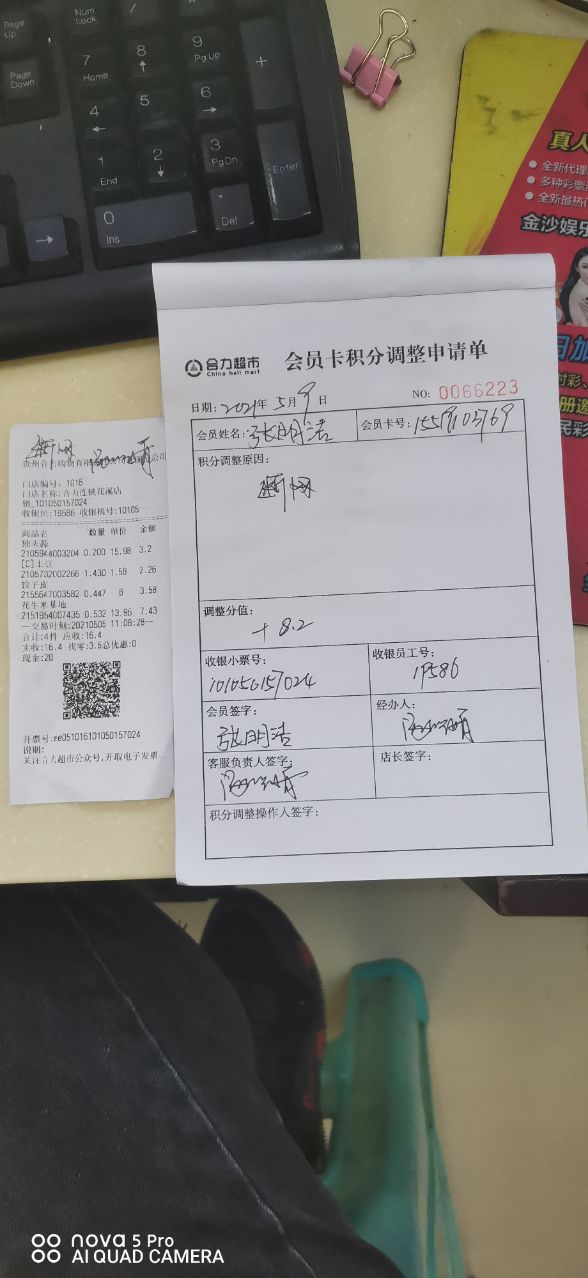 Page Up
Num Lock
/
Page Down
7 Home
8
9 PgUp
+
4
5
6
1 End
2
3 PgDn
Enter
0 Ins
Del
真人
全新代理
多种彩票
全新最热
金沙娱乐
合力超市
China heli mart
会员卡积分调整申请单
日期: 2021年 5月 9 日
NO: 0066223
会员姓名: 张明浩
会员卡号:
积分调整原因:
断网
调整分值:
+8.2
收银小票号:
101050157024
收银员工号:
19586
会员签字:
张明浩
经办人:
客服负责人签字:
店长签字:
积分调整操作人签字:
断网
贵州合力购物有限公司
门店编号: 1016
门店名称: 合力连锁花溪店
销_101050157024
收银员: 19586 收银机号: 10105
商品名 数量 单价 金额
独头蒜
2105944003204 0.200 15.98 3.2
[C]土豆
2105732002266 1.430 1.58 2.26
饺子皮
2155647003582 0.447 8 3.58
花生米基地
2151954007435 0.532 13.96 7.43
—交易时刻:20210505 11:08:28—
合计:4件 应收:16.4
实收:16.4 找零:3.5总优惠:0
现金:20
开票号:ee051016101050157024
说明:
关注合力超市公众号,开取电子发票
nova 5 Pro
AI QUAD CAMERA